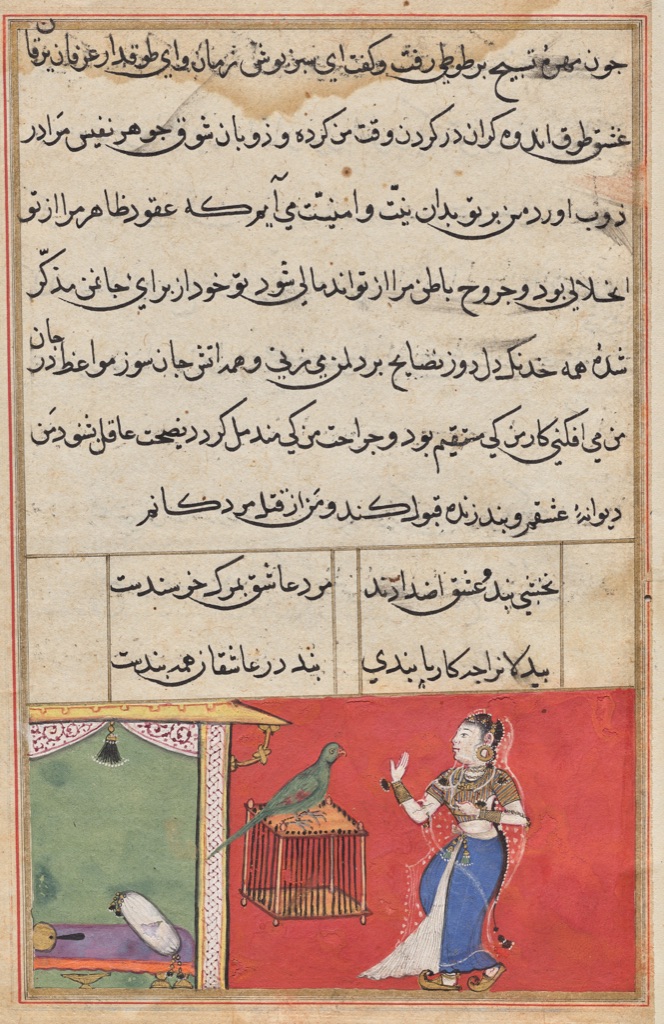 چون مهره تسبیح بر طوطی رفت و کفت ای سبز پوش زمان و ای طوقدار عرفان یرقان
عشق طوق اندوه کران در کردن وقت من کرده و زوبان شوق جوهر نفیس مرا در
ذوب اورد من بر تو بدان نیّت و امنیّت می آیم که عقود ظاهر مرا از تو
انحلالی بود و جروح باطن مرا از تو اندمالی شود تو خود از برای جا من مذکّر
شده همه خدنک دل دوز نصایح بر دل من می زنی و همه اتش جان سوز مواعظ در جان
من می افکنی کار من کی مستقیم بود و جراحت من کی مندمل کردد نصیحت عاقل شنود من
دیوانهٔ عشقم و پند زنده قبول کند و من از قبل مردکانم
نخشبی پند و عشق اضدادند مرد عاشق بمرک خرسندست
بیدلانرا چه کار با پندی پند در عاشقان همه بندست